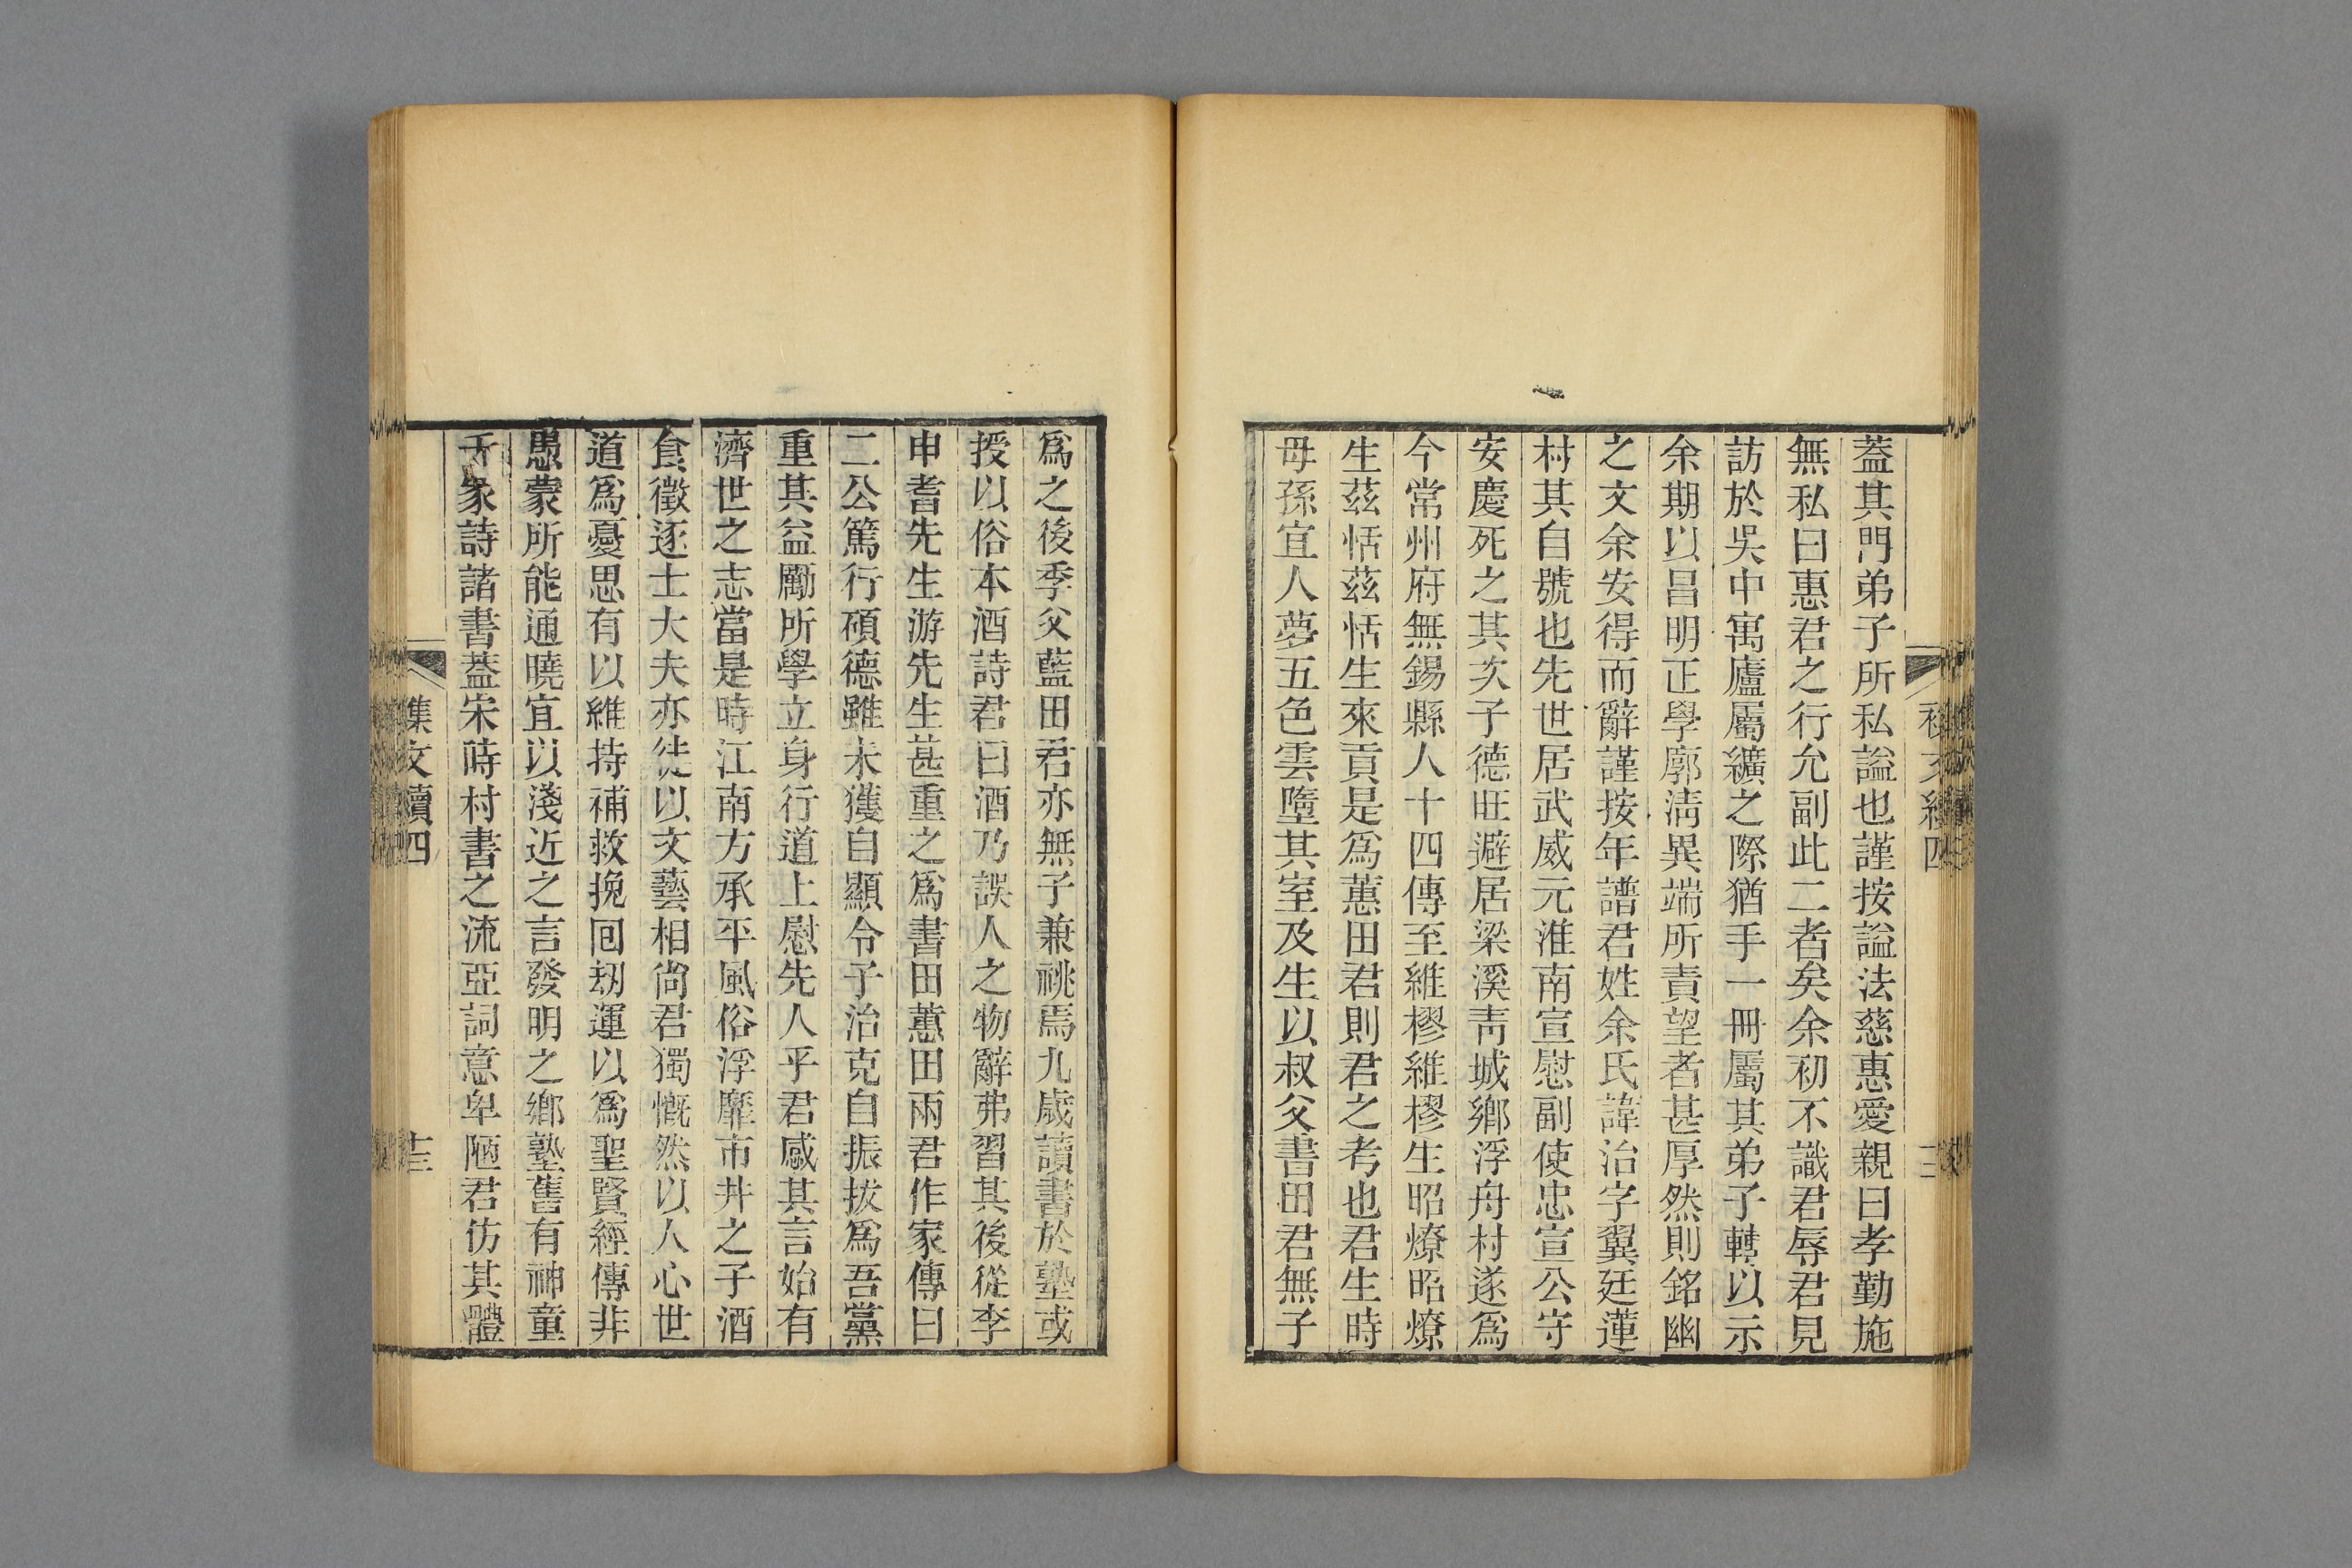 蓋其門弟子所私謚也謹按謚法慈惠愛親曰孝勤施
無私曰惠君之行允副此二者矣余初不識君辱君見
訪於吳中寓廬屬纊之際猶手一冊屬其弟子轉以示
余期以昌明正學廓清異端所責望者甚厚然則銘幽
之文余安得而辭謹按年譜君姓余氏諱治字翼廷蓮
村其自號也先世居武威元淮南宣慰副使忠宣公守
安慶死之其次子德旺避居梁溪青城鄉浮舟村遂爲
今常州府無錫縣人十四傳至維樛維樛生昭燎昭燎
生茲恬茲恬生來貢是爲蕙田君則君之考也君生時
毋孫宜人夢五色雲墮其室及生以叔父書田君無子
爲之後季父藍田君亦無子兼祧焉九歲讀書於塾或
授以俗本酒詩君曰酒乃誤人之物辭弗習其後從李
申耆先生游先生甚重之爲書田蕙田兩君作家傳曰
二公篤行碩德雖未獲自顯令子治克自振拔爲吾黨
重其益勵所學立身行道上慰先人乎君感其言始有
濟世之志當是時江南方承平風俗浮靡市井之子酒
食徵逐士大夫亦徒以文藝相尙君獨慨然以人心世
道爲憂思有以維持補救挽回刼運以爲聖賢經傳非
愚蒙所能通曉宜以淺近之言發明之鄉塾舊有神童
千家詩諸書蓋宋時村書之流亞詞意卑陋君仿其體
集文續四
十三